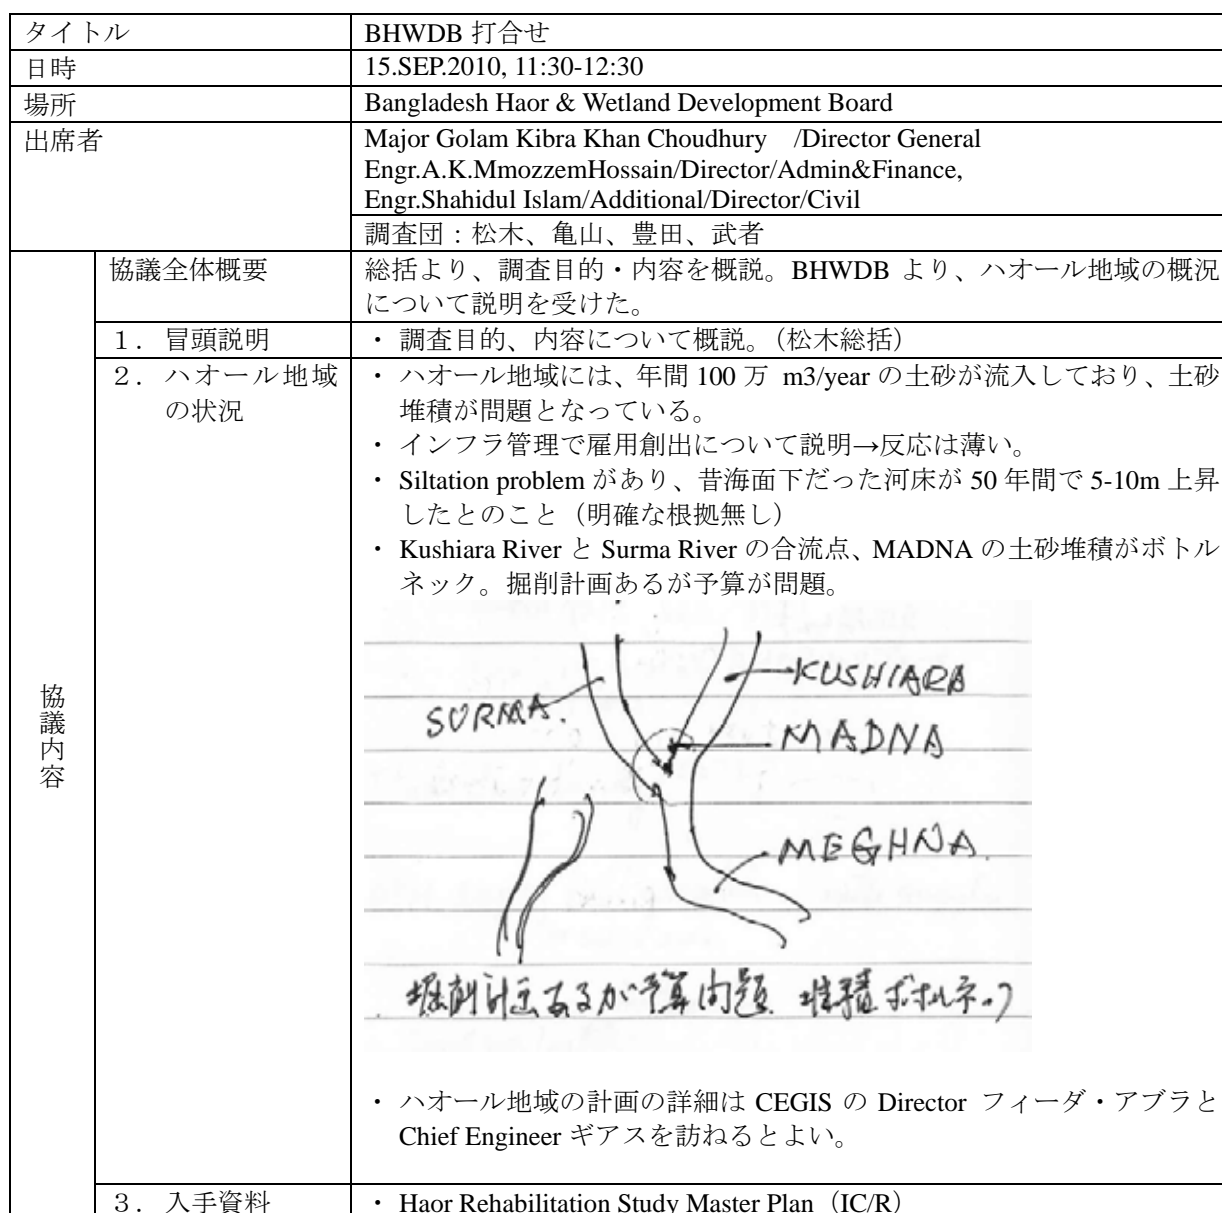 タイトル BHWDB 打合せ
日時 15.SEP.2010, 11:30-12:30
場所 Bangladesh Haor & Wetland Development Board
出席者 Major Golam Kibra Khan Choudhury /Director General
Engr.A.K.MmozzemHossain/Director/Admin&Finance,
Engr.Shahidul Islam/Additional/Director/Civil
調査団：松木、亀山、豊田、武者
協議内容
協議全体概要 総括より、調査目的・内容を概説。BHWDB より、ハオール地域の概況
について説明を受けた。
１．冒頭説明 ・ 調査目的、内容について概説。（松木総括）
２．ハオール地域 ・ ハオール地域には、年間 100 万 m3/year の土砂が流入しており、土砂
の状況 堆積が問題となっている。
・ インフラ管理で雇用創出について説明→反応は薄い。
・ Siltation problem があり、昔海面下だった河床が 50 年間で 5-10m 上昇
したとのこと（明確な根拠無し）
・ Kushiara River と Surma River の合流点、MADNA の土砂堆積がボトル
ネック。掘削計画あるが予算が問題。
KUSHIARA
SURMA.
MADNA
MEGHNA.
掘削計画あるが予算問題 堆積ボトルネック
・ ハオール地域の計画の詳細は CEGIS の Director フィーダ・アブラと
Chief Engineer ギアスを訪ねるとよい。
３．入手資料 ・ Haor Rehabilitation Study Master Plan（IC/R）